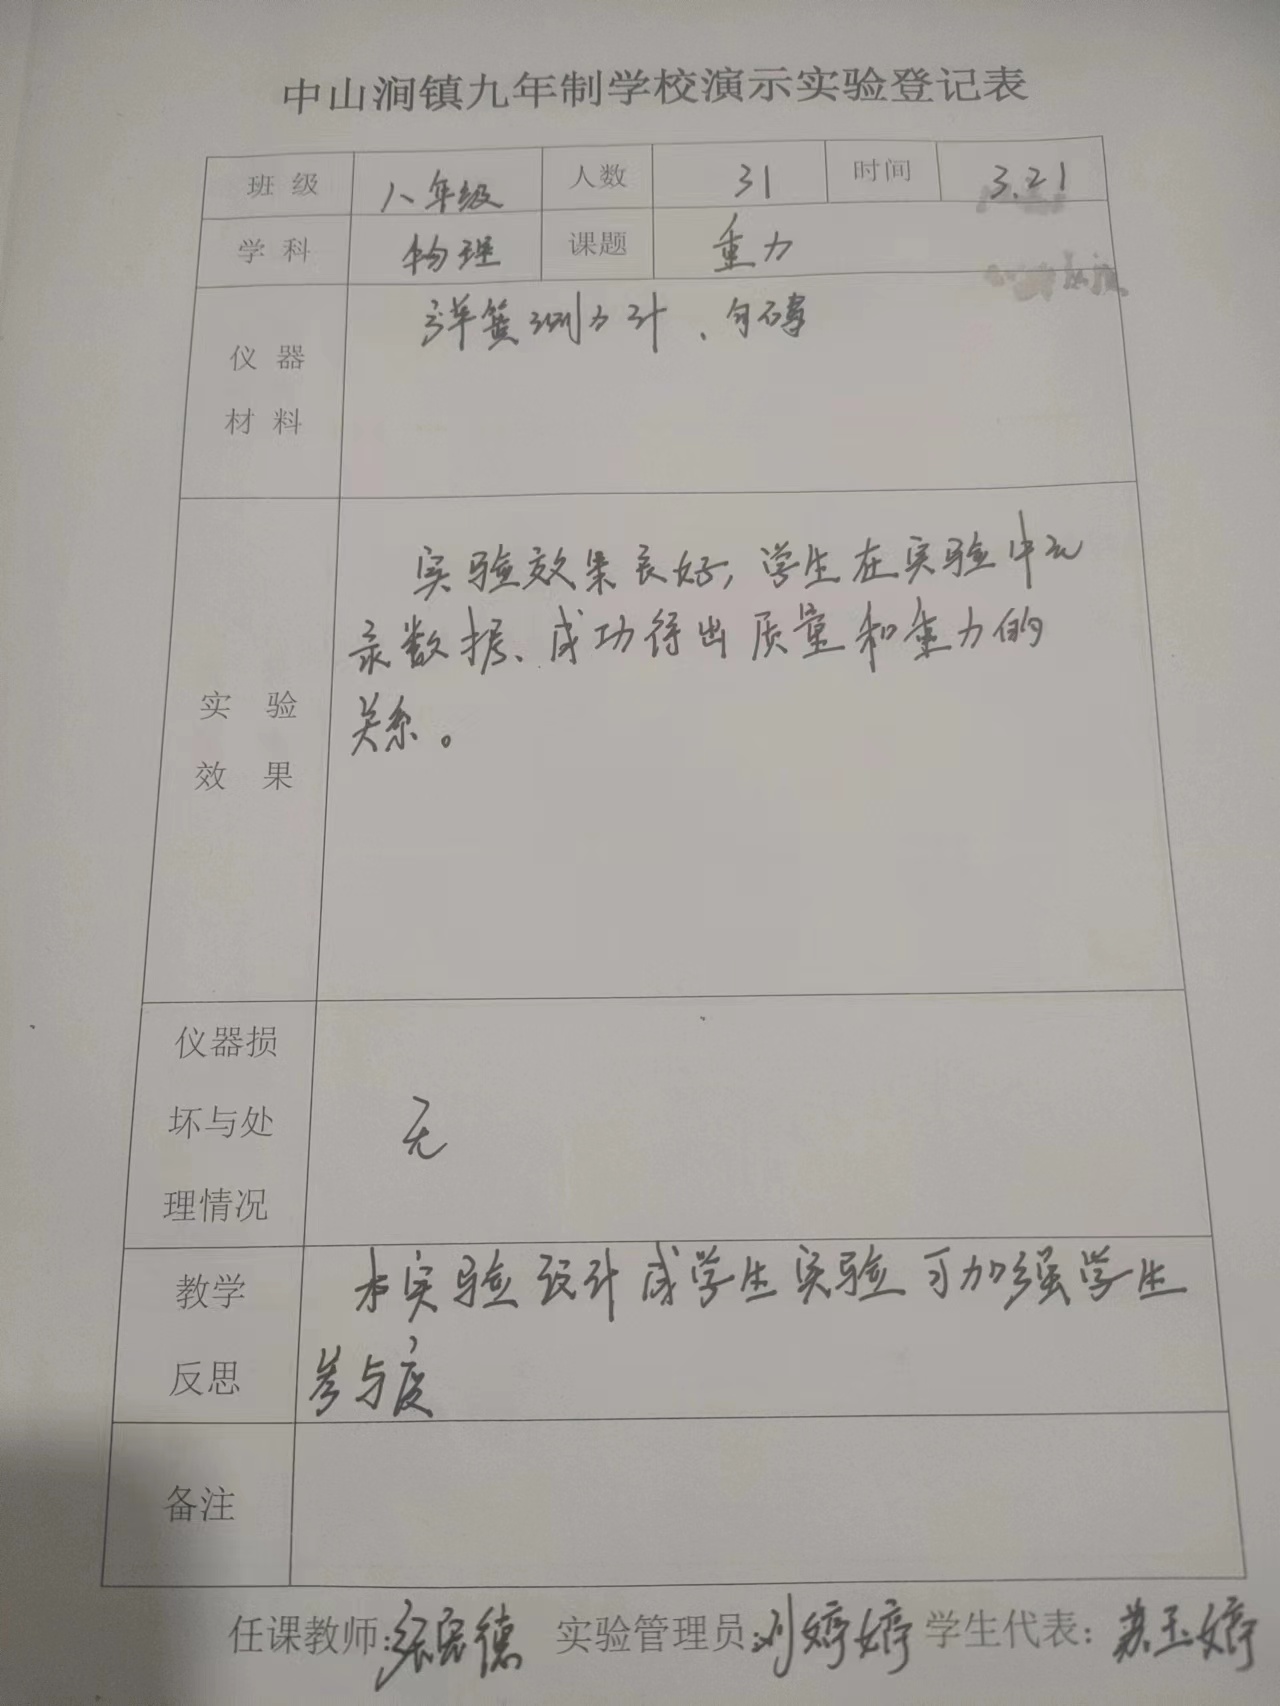 中山涧镇九年制学校演示实验登记表
班 级 八年级 人数 31 时间 3.21
学 科 物理 课题 重力
仪 器
材 料
弹簧测力计、勾码
实 验
效 果
实验效果良好,学生在实验中记
录数据、成功得出质量和重力的
关系。
仪器损
坏与处
理情况
无
教学
反思
本实验设计成学生实验可加强学生
参与度
备注
任课教师:张宏德 实验管理员:刘婷婷 学生代表:苏玉婷